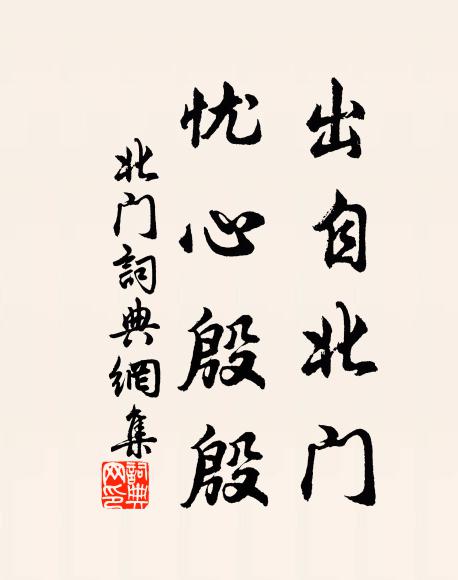 出自北门
忧心殷殷
北门詞典網集
詞典网印